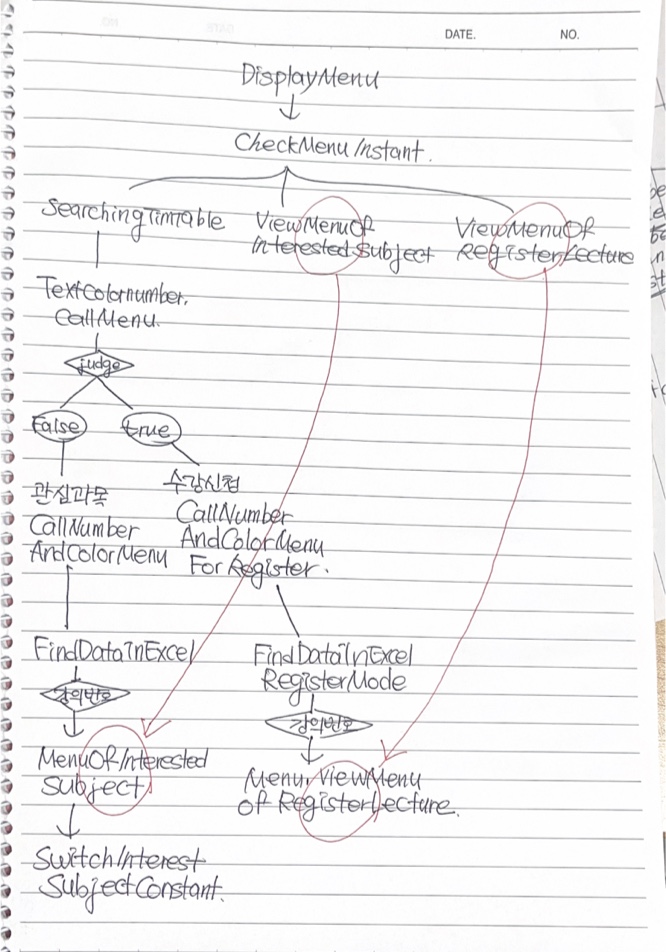 DATE. NO.
DisplayMenu
CheckMenuInstant.
SearchingTimTable
ViewMenuOf
InterestedSubject
ViewMenuOf
RegisterLecture
TextColornumber,
CallMenu.
judge
False
true
관심과목
CallNumber
AndColorMenu
수강신청
CallNumber
AndColorMenu
ForRegister.
FindDataInExcel
강의번호
MenuOfInterested
Subject
SwitchInterest
SubjectConstant.
FindDataInExcel
RegisterMode
강의번호
Menu, ViewMenu
of RegisterLecture.